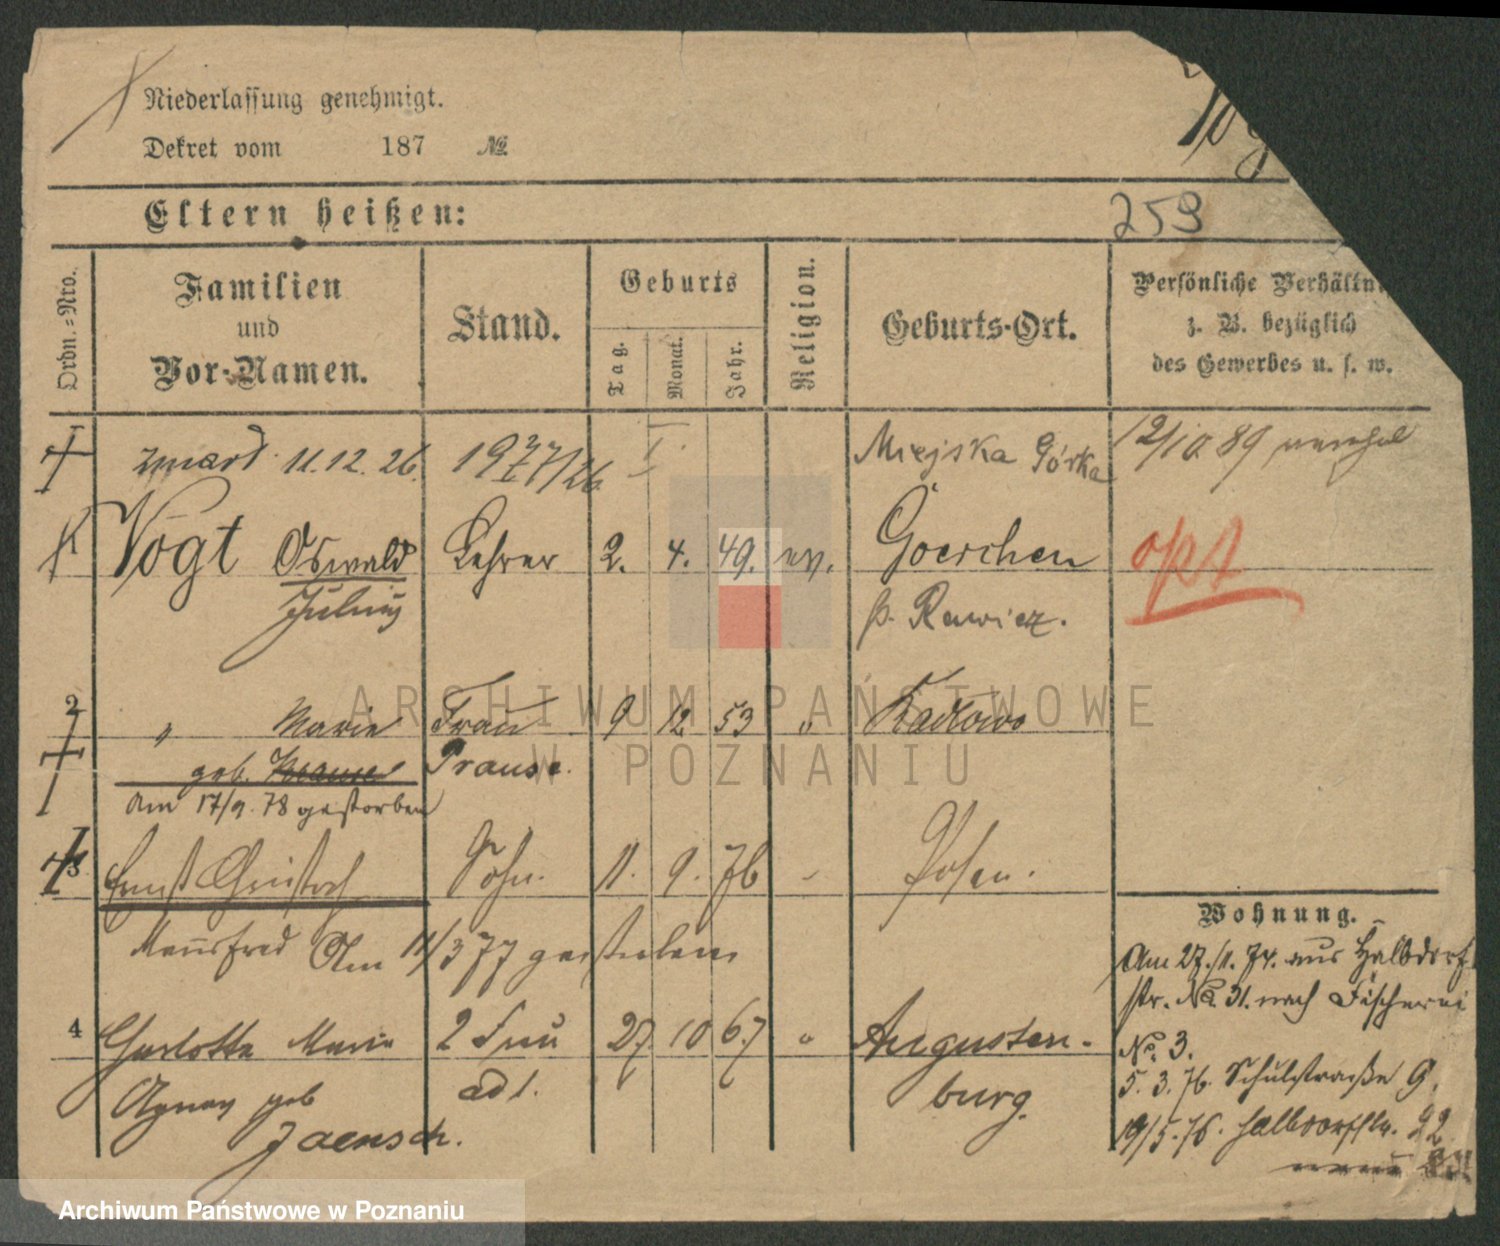 Niederlassung genehmigt.
Dekret vom 187 №
Vog
Eltern heißen:
259
Ordn.-Nro.
Familien und Vor-Namen.
Stand.
Geburts
Tag.
Monat.
Jahr.
Religion.
Geburts-Ort.
Persönliche Verhältn
z. B. bezüglich
des Gewerbes u. s. w.
zmarł 11.12.26. Miejska Górka 12/10 89
1 Vogt Oswald Lehrer 2. 4. 49. ev. Goerchen opt
Julius p. Rawicz.
2 " Marie Frau 9 12 53 " Kadowo
geb. Krause Prause.
Am 17/9. 78 gestorben
3 Ernst Christoph Sohn. 11. 9. 76 - Posen.
Mansfred Am 11/3 77 gestorben
4 Charlotte Marie 2 Frau 27. 10 67 " Augusten-
Agnes geb ad 1. burg.
Jaensch.
Wohnung.
Am 27./1. 74. aus Halbdorf
str. No. 31. nach Fischerei
No. 3.
5. 3. 76. Schulstraße 9.
19/5. 76. Halbdorfstr. 22
ARCHIWUM PAŃSTWOWE
W POZNANIU
Archiwum Państwowe w Poznaniu